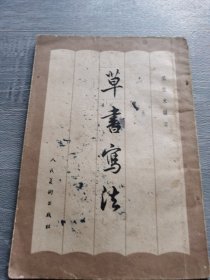 草書寫法
人民美術出版社